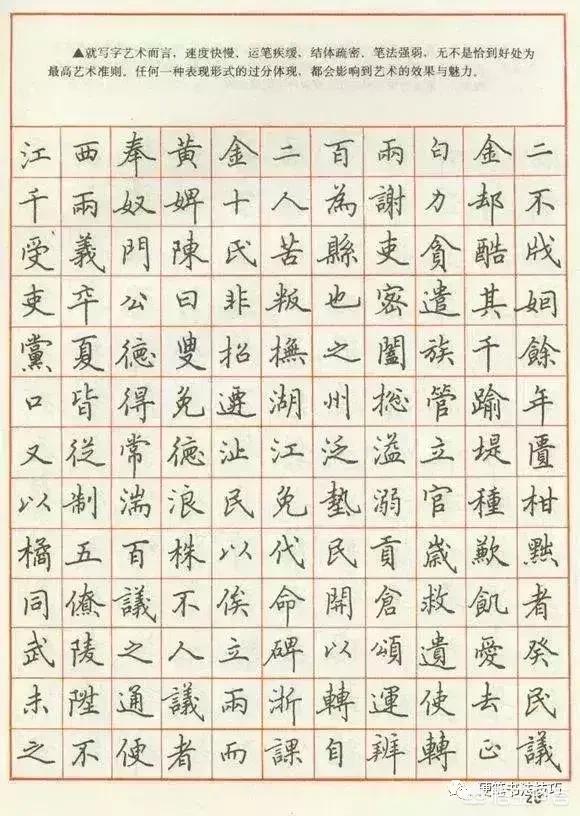 ▲就写字艺术而言，速度快慢、运笔疾缓，结体疏密、笔法强弱，无不是恰到好处为
最高艺术准则。任何一种表现形式的过分体现，都会影响到艺术的效果与魅力。
江西奉黄金二百兩白金二
千兩奴婢十人為謝力却不
受義門陳氏苦縣吏貪酷戕
吏卒公曰非叛也密遣其姻
黨夏德叟招撫之闔族千餘
口皆得免遷湖州摠管踰年
又從常德沚江泛溢立堤匱
以制湍浪民免墊溺官種柑
橘五百株以代民貢歲歉黜
同僚議不俟命開倉救飢者
武陵之人立碑以頌遺愛癸
未陞通議兩浙轉運使去民
之不便者而課自辨轉正議
硬笔书法技巧